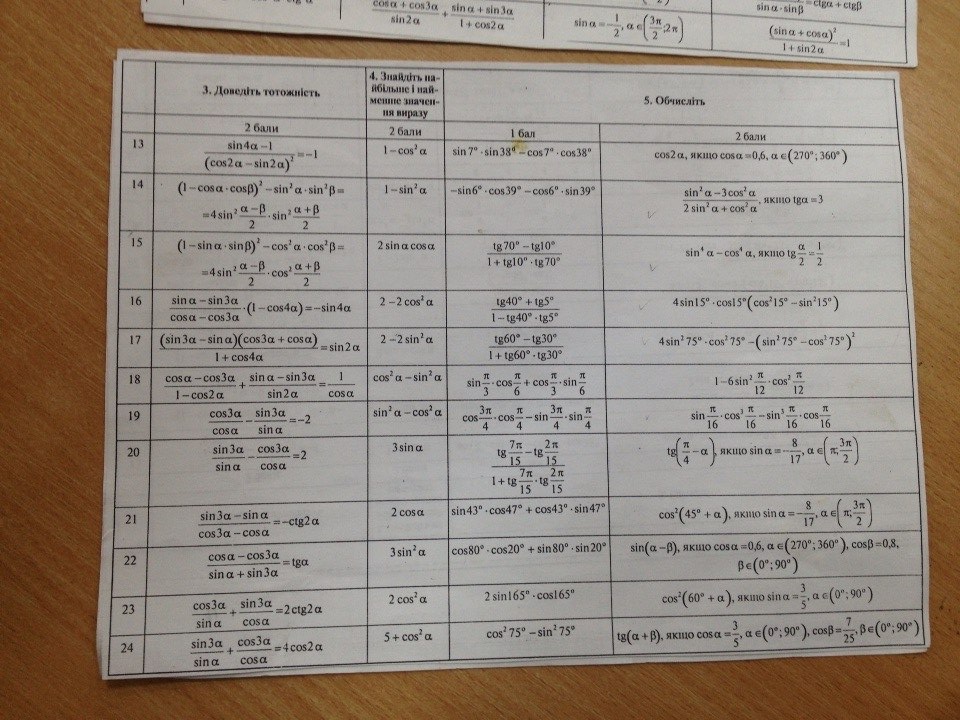 cosα + cos3α / sin2α + sinα + sin3α / 1 + cos2α
sinα = −1/2, α ∈ (3π/2; 2π)
sinα · sinβ = ctgα + ctgβ
(sinα + cosα)² / 1 + sin2α = 1
3. Доведіть тотожність
4. Знайдіть на-
йбільше і най-
менше значен-
ня виразу
5. Обчисліть
2 бали 2 бали 1 бал 2 бали
13 sin4α − 1 / (cos2α − sin2α)² = −1 1 − cos²α sin7° · sin38° − cos7° · cos38° cos2α, якщо cosα = 0,6, α ∈ (270°; 360°)
14 (1 − cosα · cosβ)² − sin²α · sin²β = 1 − sin²α −sin6° · cos39° − cos6° · sin39° sin²α − 3cos²α / 2sin²α + cos²α, якщо tgα = 3
= 4sin² α − β / 2 · sin² α + β / 2
15 (1 − sinα · sinβ)² − cos²α · cos²β = 2 sinα cosα tg70° − tg10° / 1 + tg10° · tg70° sin⁴α − cos⁴α, якщо tg α/2 = 1/2
= 4sin² α − β / 2 · cos² α + β / 2
16 sinα − sin3α / cosα − cos3α · (1 − cos4α) = −sin4α 2 − 2cos²α tg40° + tg5° / 1 − tg40° · tg5° 4sin15° · cos15°(cos²15° − sin²15°)
17 (sin3α − sinα)(cos3α + cosα) / 1 + cos4α = sin2α 2 − 2sin²α tg60° − tg30° / 1 + tg60° · tg30° 4sin²75° · cos²75° − (sin²75° − cos²75°)²
18 cosα − cos3α / 1 − cos2α + sinα − sin3α / sin2α = 1 / cosα cos²α − sin²α sin π/3 · cos π/6 + cos π/3 · sin π/6 1 − 6sin² π/12 · cos² π/12
19 cos3α / cosα − sin3α / sinα = −2 sin²α − cos²α cos 3π/4 · cos π/4 − sin 3π/4 · sin π/4 sin π/16 · cos³ π/16 − sin³ π/16 · cos π/16
20 sin3α / sinα − cos3α / cosα = 2 3sinα tg 7π/15 − tg 2π/15 / 1 + tg 7π/15 · tg 2π/15 tg(π/4 − α), якщо sinα = −8/17, α ∈ (π; 3π/2)
21 sin3α − sinα / cos3α − cosα = −ctg2α 2 cosα sin43° · cos47° + cos43° · sin47° cos²(45° + α), якщо sinα = −8/17, α ∈ (π; 3π/2)
22 cosα − cos3α / sinα + sin3α = tgα 3sin²α cos80° · cos20° + sin80° · sin20° sin(α − β), якщо cosα = 0,6, α ∈ (270°; 360°), cosβ = 0,8,
β ∈ (0°; 90°)
23 cos3α / sinα + sin3α / cosα = 2 ctg2α 2 cos²α 2 sin165° · cos165° cos²(60° + α), якщо sinα = 3/5, α ∈ (0°; 90°)
24 sin3α / sinα + cos3α / cosα = 4 cos2α 5 + cos²α cos²75° − sin²75° tg(α + β), якщо cosα = 3/5, α ∈ (0°; 90°), cosβ = 7/25, β ∈ (0°; 90°)